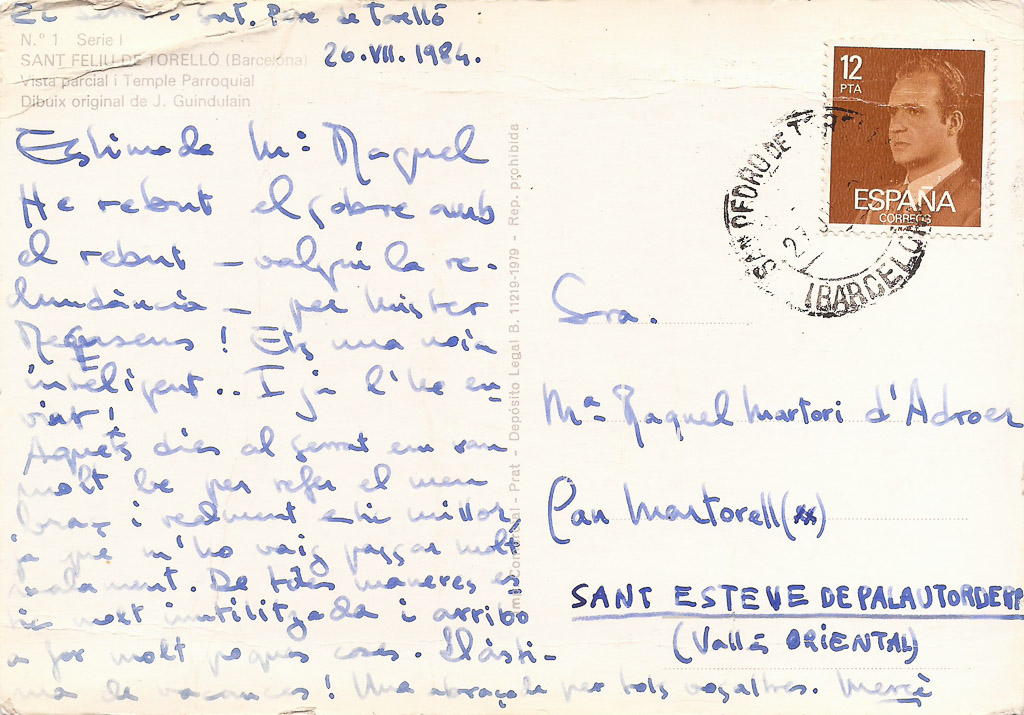 El Serrat - Sant. Pere de Torelló
26.VII.1984.
N.º 1 Serie I
SANT FELIU DE TORELLÓ (Barcelona)
Vista parcial i Temple Parroquial
Dibuix original de J. Guindulain
Estimada Mª Raquel
He rebut el sobre amb
el rebut – valgui la re-
dundància – per Mister
! Ets una noia
intel·ligent.. I ja l'he en
viat!
Aquets dies al serrat em van
molt bé per refer el meu
braç i realment estic millor,
ja que m'ho vaig passar molt
malament. De totes maneres es-
tic molt inutilitzada i arribo
a fer molt poques coses. Llàsti-
ma de vacances! Una abraçada per tots vosaltres. Mercè
Prat - Depósito Legal B. 11219-1979 - Rep. prohibida
12
PTA
ESPAÑA
CORREOS
SAN PEDRO DE
27
(BARCELONA
Sra.
Mª Raquel Martori d'Adroer
Can Martorell (xx)
SANT ESTEVE DE PALAUTORDERA
(Vallès ORIENTAL)